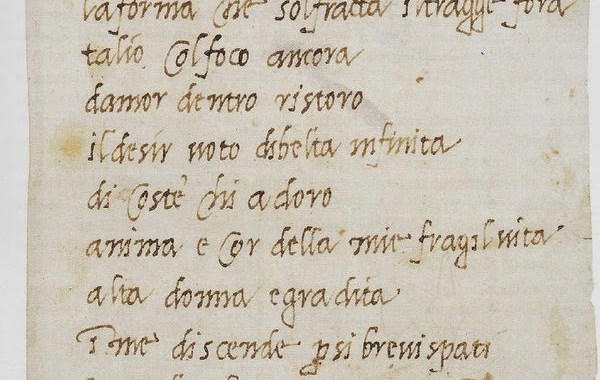 la forma che sol fracta il tragge fora
talio colfoco ancora
damor dentro ristoro
ildesir uoto dibelta infinita
di coste chi adoro
anima e cor della mie fragil uita
alta donna egradita
ī me discende ꝑsi breui spati